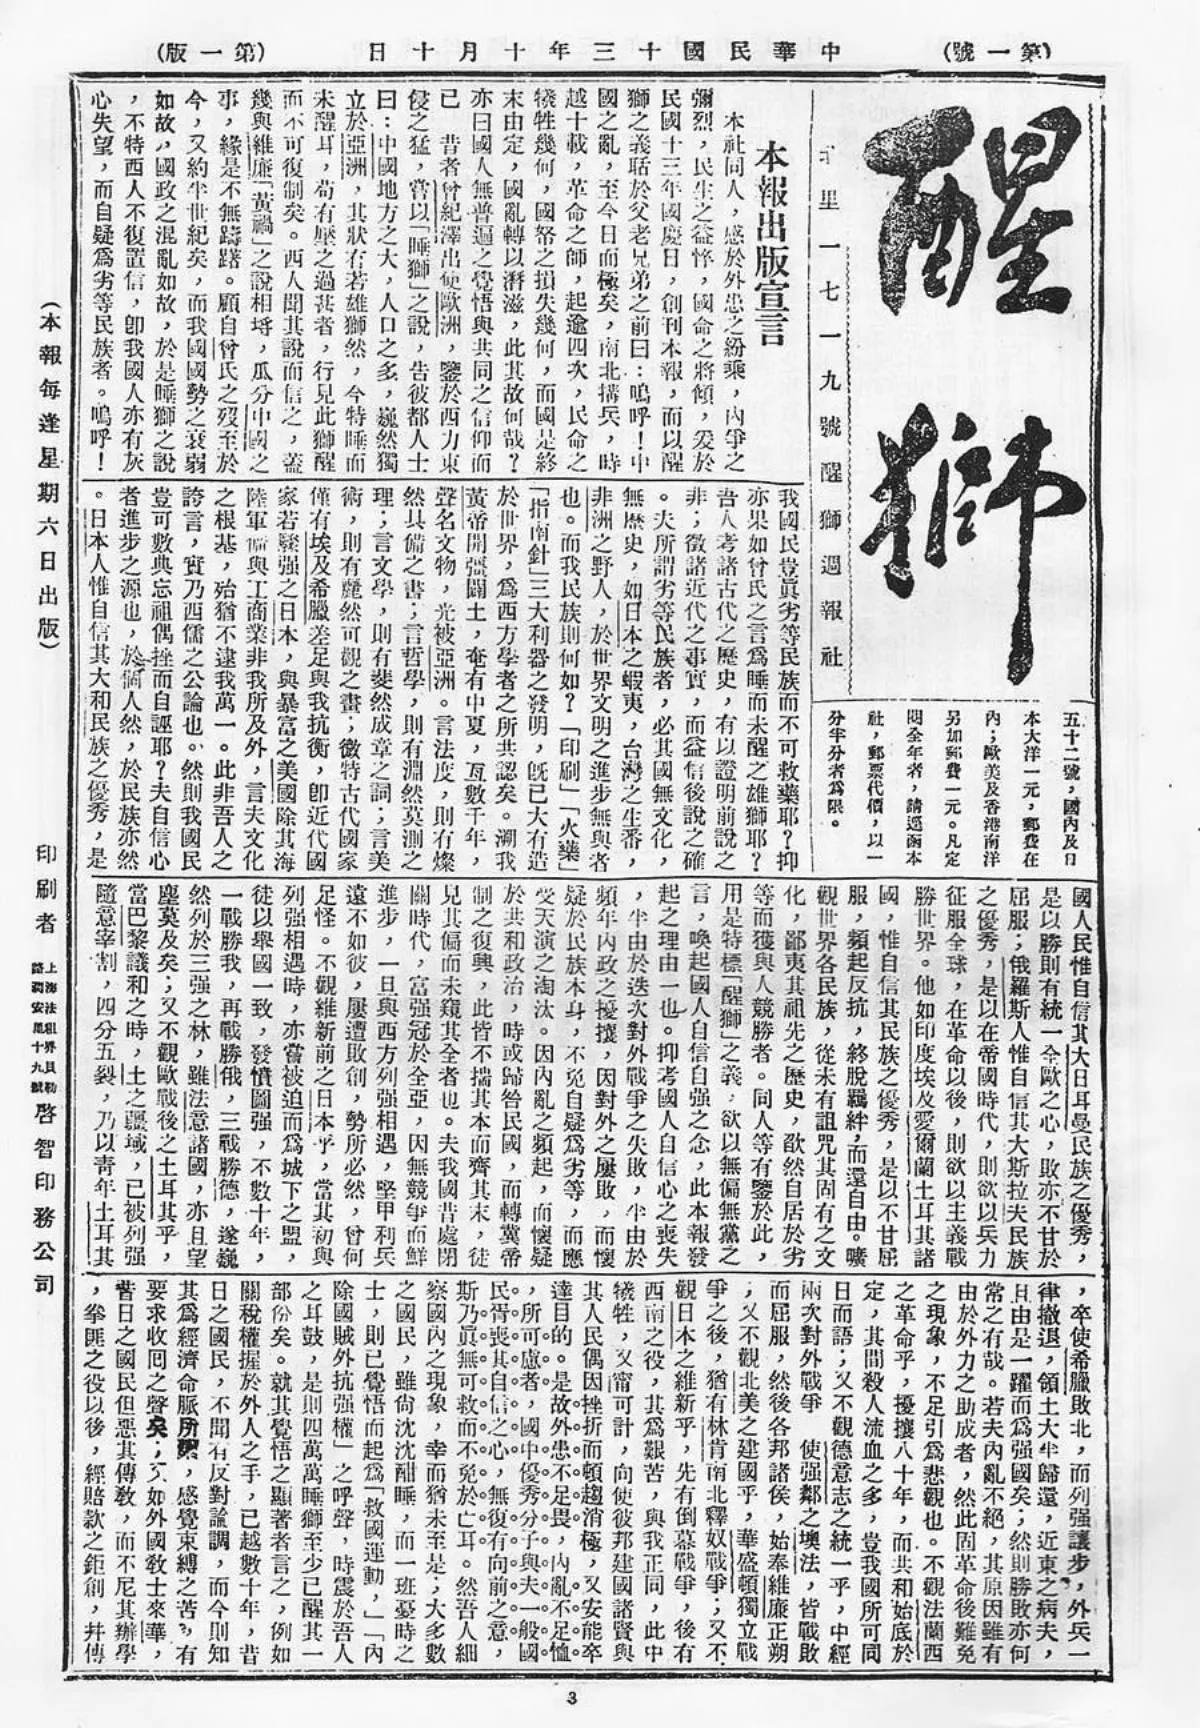 （第一號）
中華民國十三年十月十日
（第一版）
醒獅
里一七一九號醒獅週報社
五十二號，國內及日
本大洋一元，郵費在
內；歐美及香港南洋
另加郵費一元。凡定
閱全年者，請逕函本
社，郵票代價，以一
分半分者爲限。
本報出版宣言
本社同人，感於外患之紛乘，內爭之
彌烈，民生之益悴，國命之將傾，爰於
民國十三年國慶日，創刊本報，而以醒
獅之義聒於父老兄弟之前曰：嗚呼！中
國之亂，至今日而極矣，南北搆兵，時
越十載，革命之師，起逾四次，民命之
犧牲幾何，國帑之損失幾何，而國是終
末由定，國亂轉以潛滋，此其故何哉？
亦曰國人無普遍之覺悟與共同之信仰而
已　昔者曾紀澤出使歐洲，鑒於西力東
侵之猛，嘗以「睡獅」之說，告彼都人士
曰：中國地方之大，人口之多，巍然獨
立於亞洲，其狀有若雄獅然，今特睡而
未醒耳，苟有壓之過甚者，行見此獅醒
而不可復制矣。西人聞其說而信之，蓋
幾與維廉「黃禍」之說相埒，瓜分中國之
事，緣是不無躊躇。顧自曾氏之歿至於
今，又約半世紀矣，而我國國勢之衰弱
如故，國政之混亂如故，於是睡獅之說
，不特西人不復置信，卽我國人亦有灰
心失望，而自疑爲劣等民族者。嗚呼！
我國民豈眞劣等民族而不可救藥耶？抑
亦果如曾氏之言爲睡而未醒之雄獅耶？
吾人考諸古代之歷史，有以證明前說之
非；徵諸近代之事實，而益信後說之確
。夫所謂劣等民族者，必其國無文化，
無歷史，如日本之蝦夷，台灣之生番，
非洲之野人，於世界文明之進步無與者
也。而我民族則何如？「印刷」「火藥」
「指南針」三大利器之發明，旣已大有造
於世界，爲西方學者之所共認矣。溯我
黃帝開彊闢土，奄有中夏，亙數千年，
聲名文物，光被亞洲。言法度，則有燦
然具備之書；言哲學，則有淵然莫測之
理；言文學，則有斐然成章之詞；言美
術，則有麗然可觀之畫；微特古代國家
僅有埃及希臘差足與我抗衡，卽近代國
家若驟强之日本，與暴富之美國除其海
陸軍備與工商業非我所及外，言夫文化
之根基，殆猶不逮我萬一。此非吾人之
誇言，實乃西儒之公論也。然則我國民
豈可數典忘祖偶挫而自誣耶？夫自信心
者進步之源也，於個人然，於民族亦然
。日本人惟自信其大和民族之優秀，是
國人民惟自信其大日耳曼民族之優秀，
是以勝則有統一全歐之心，敗亦不甘於
屈服；俄羅斯人惟自信其大斯拉夫民族
之優秀，是以在帝國時代，則欲以兵力
征服全球，在革命以後，則欲以主義戰
勝世界。他如印度埃及愛爾蘭土耳其諸
國，惟自信其民族之優秀，是以不甘屈
服，頻起反抗，終脫羈絆，而還自由。曠
觀世界各民族，從未有詛咒其固有之文
化，鄙夷其祖先之歷史，欿然自居於劣
等而獲與人競勝者。同人等有鑒於此，
用是特標「醒獅」之義，欲以無偏無黨之
言，喚起國人自信自强之念，此本報發
起之理由一也。抑考國人自信心之喪失
，半由於迭次對外戰爭之失敗，半由於
頻年內政之擾攘，因對外之屢敗，而懷
疑於民族本身，不免自疑爲劣等，而應
受天演之淘汰。因內亂之頻起，而懷疑
於共和政治，時或歸咎民國，而轉冀帝
制之復興，此皆不揣其本而齊其末，徒
見其偏而未窺其全者也。夫我國昔處閉
關時代，富强冠於全亞，因無競爭而鮮
進步，一旦與西方列强相遇，堅甲利兵
遠不如彼，屢遭敗創，勢所必然，曾何
足怪。不觀維新前之日本乎，當其初與
列强相遇時，亦嘗被迫而爲城下之盟，
徒以舉國一致，發憤圖强，不數十年，
一戰勝我，再戰勝俄，三戰勝德，遂巍
然列於三强之林，雖法意諸國，亦且望
塵莫及矣；又不觀歐戰後之土耳其乎，
當巴黎議和之時，土之疆域，已被列强
隨意宰割，四分五裂，乃以靑年土耳其
，卒使希臘敗北，而列强讓步，外兵一
律撤退，領土大半歸還，近東之病夫，
且由是一躍而爲强國矣；然則勝敗亦何
常之有哉。若夫內亂不絕，其原因雖有
由於外力之助成者，然此固革命後難免
之現象，不足引爲悲觀也。不觀法蘭西
之革命乎，擾攘八十年，而共和始底於
定，其間殺人流血之多，豈我國所可同
日而語；又不觀德意志之統一乎，中經
兩次對外戰爭　使强鄰之墺法，皆戰敗
而屈服，然後各邦諸侯，始奉維廉正朔
；又不觀北美之建國乎，華盛頓獨立戰
爭之後，猶有林肯南北釋奴戰爭；又不
觀日本之維新乎，先有倒幕戰爭，後有
西南之役，其爲艱苦，與我正同，此中
犧牲，又甯可計，向使彼邦建國諸賢與
其人民偶因挫折而頓趨消極，又安能卒
達目的。是故外患不足畏，內亂不足恤
，所可慮者，國中優秀分子與夫一般國
民，胥喪其自信之心，無復有向前之意，
斯乃眞無可救而不免於亡耳。然吾人細
察國內之現象，幸而猶未至是；大多數
之國民，雖尙沈沈酣睡，而一班憂時之
士，則已覺悟而起爲「救國運動，」「內
除國賊外抗强權」之呼聲，時震於吾人
之耳鼓，是則四萬萬睡獅至少已醒其一
部份矣。就其覺悟之顯著者言之，例如
關稅權握於外人之手，已越數十年，昔
日之國民，不聞有反對論調，而今則知
其爲經濟命脈所繫，感覺束縛之苦，有
要求收回之聲矣；又如外國敎士來華，
昔日之國民但惡其傳敎，而不尼其辦學
，拳匪之役以後，經賠款之鉅創，幷傳
（本報每逢星期六日出版）
印刷者
上海法租界貝勒
路潤安里十九號
啓智印務公司
3